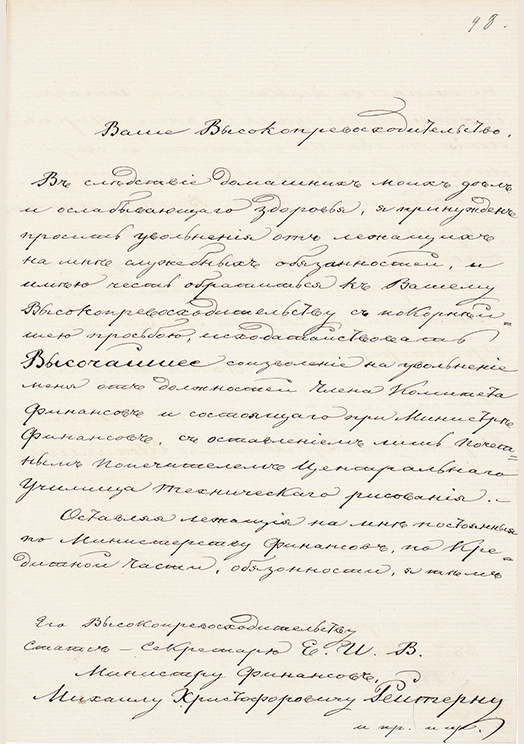 98.
Ваше Высокопревосходительство.
Въ слѣдствіе домашнихъ моихъ дѣлъ
и ослабывающаго здоровья, я принужденъ
просить увольненія отъ лежащихъ
на мнѣ служебныхъ обязанностей, и
имѣю честь обратиться къ Вашему
Высокопревосходительству съ покорнѣй=
шею просьбою, исходатайствовать
Высочайшее соизволеніе на увольненіе
меня отъ должностей Члена Комитета
Финансовъ и состоящаго при Министрѣ
Финансовъ, съ оставленіемъ лишь Почет=
нымъ Попечителемъ Центральнаго
Училища техническаго рисованія.
Оставляя лежащія на мнѣ постоянныя
по Министерству Финансовъ, по Кре=
дитной Части, обязонности, я тѣмъ
Его Высокопревосходительству
Статсъ-Секретарю Е. И. В.
Министру Финансовъ,
Михаилу Христофоровичу Рейтерну
и пр. и пр.